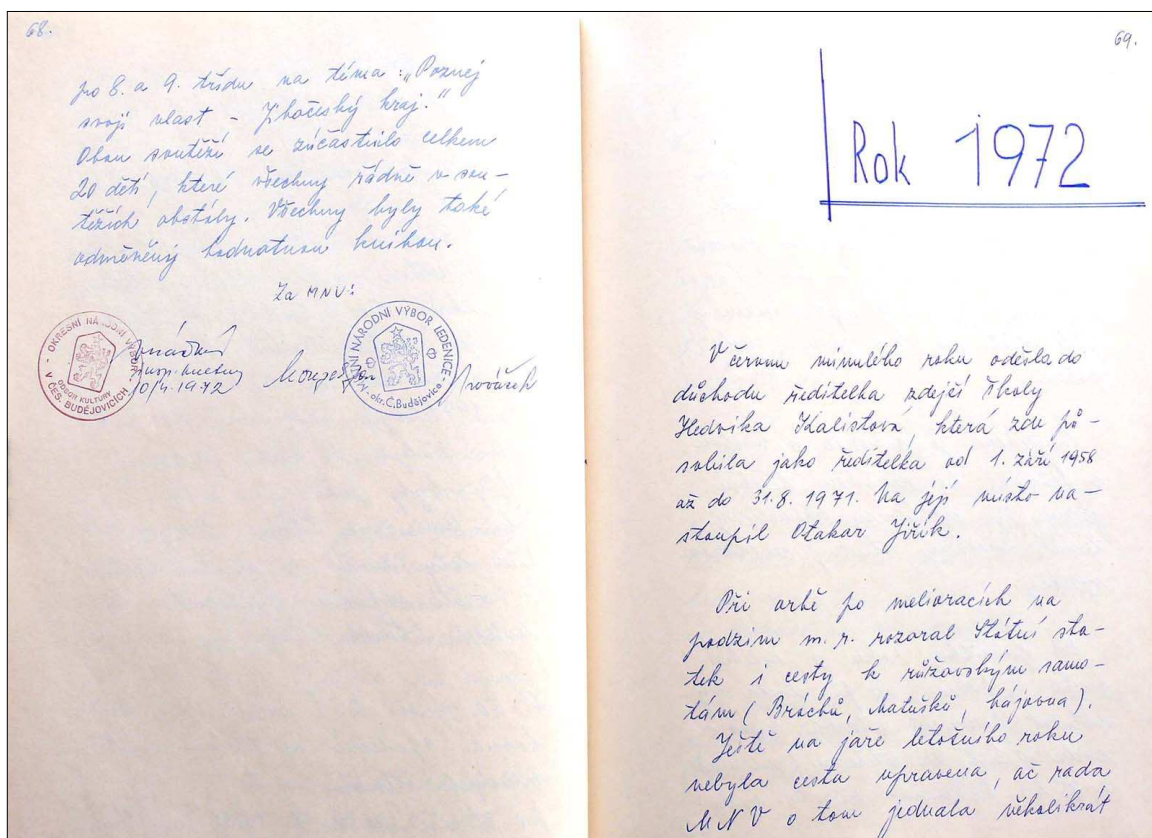 68.
po 8. a 9. třídu na téma: „Poznej
svoji vlast - Jihočeský kraj."
Obou soutěží se zúčastnilo celkem
20 dětí, které všechny řádně v sou-
těžích obstály. Všechny byly také
odměněny hodnotnou knihou.
Za MNV:
OKRESNÍ NÁRODNÍ VÝBOR
V ČES. BUDĚJOVICÍCH
ODBOR KULTURY
insp. kultury
10/4. 1972
MÍSTNÍ NÁRODNÍ VÝBOR LEDENICE
okr. Č. Budějovice
69.
Rok 1972
V červnu minulého roku odešla do
důchodu ředitelka zdejší školy
Hedvika Kalistová, která zde pů-
sobila jako ředitelka od 1. září 1958
až do 31.8. 1971. Na její místo na-
stoupil Otakar Jiřík.
Při orbě po melioracích na
podzim m. r. rozoral Státní sta-
tek i cesty k růžovským samo-
tám (Bráchů, Matušků, hájovna).
Ještě na jaře letošního roku
nebyla cesta upravena, ač rada
MNV o tom jednala několikrát